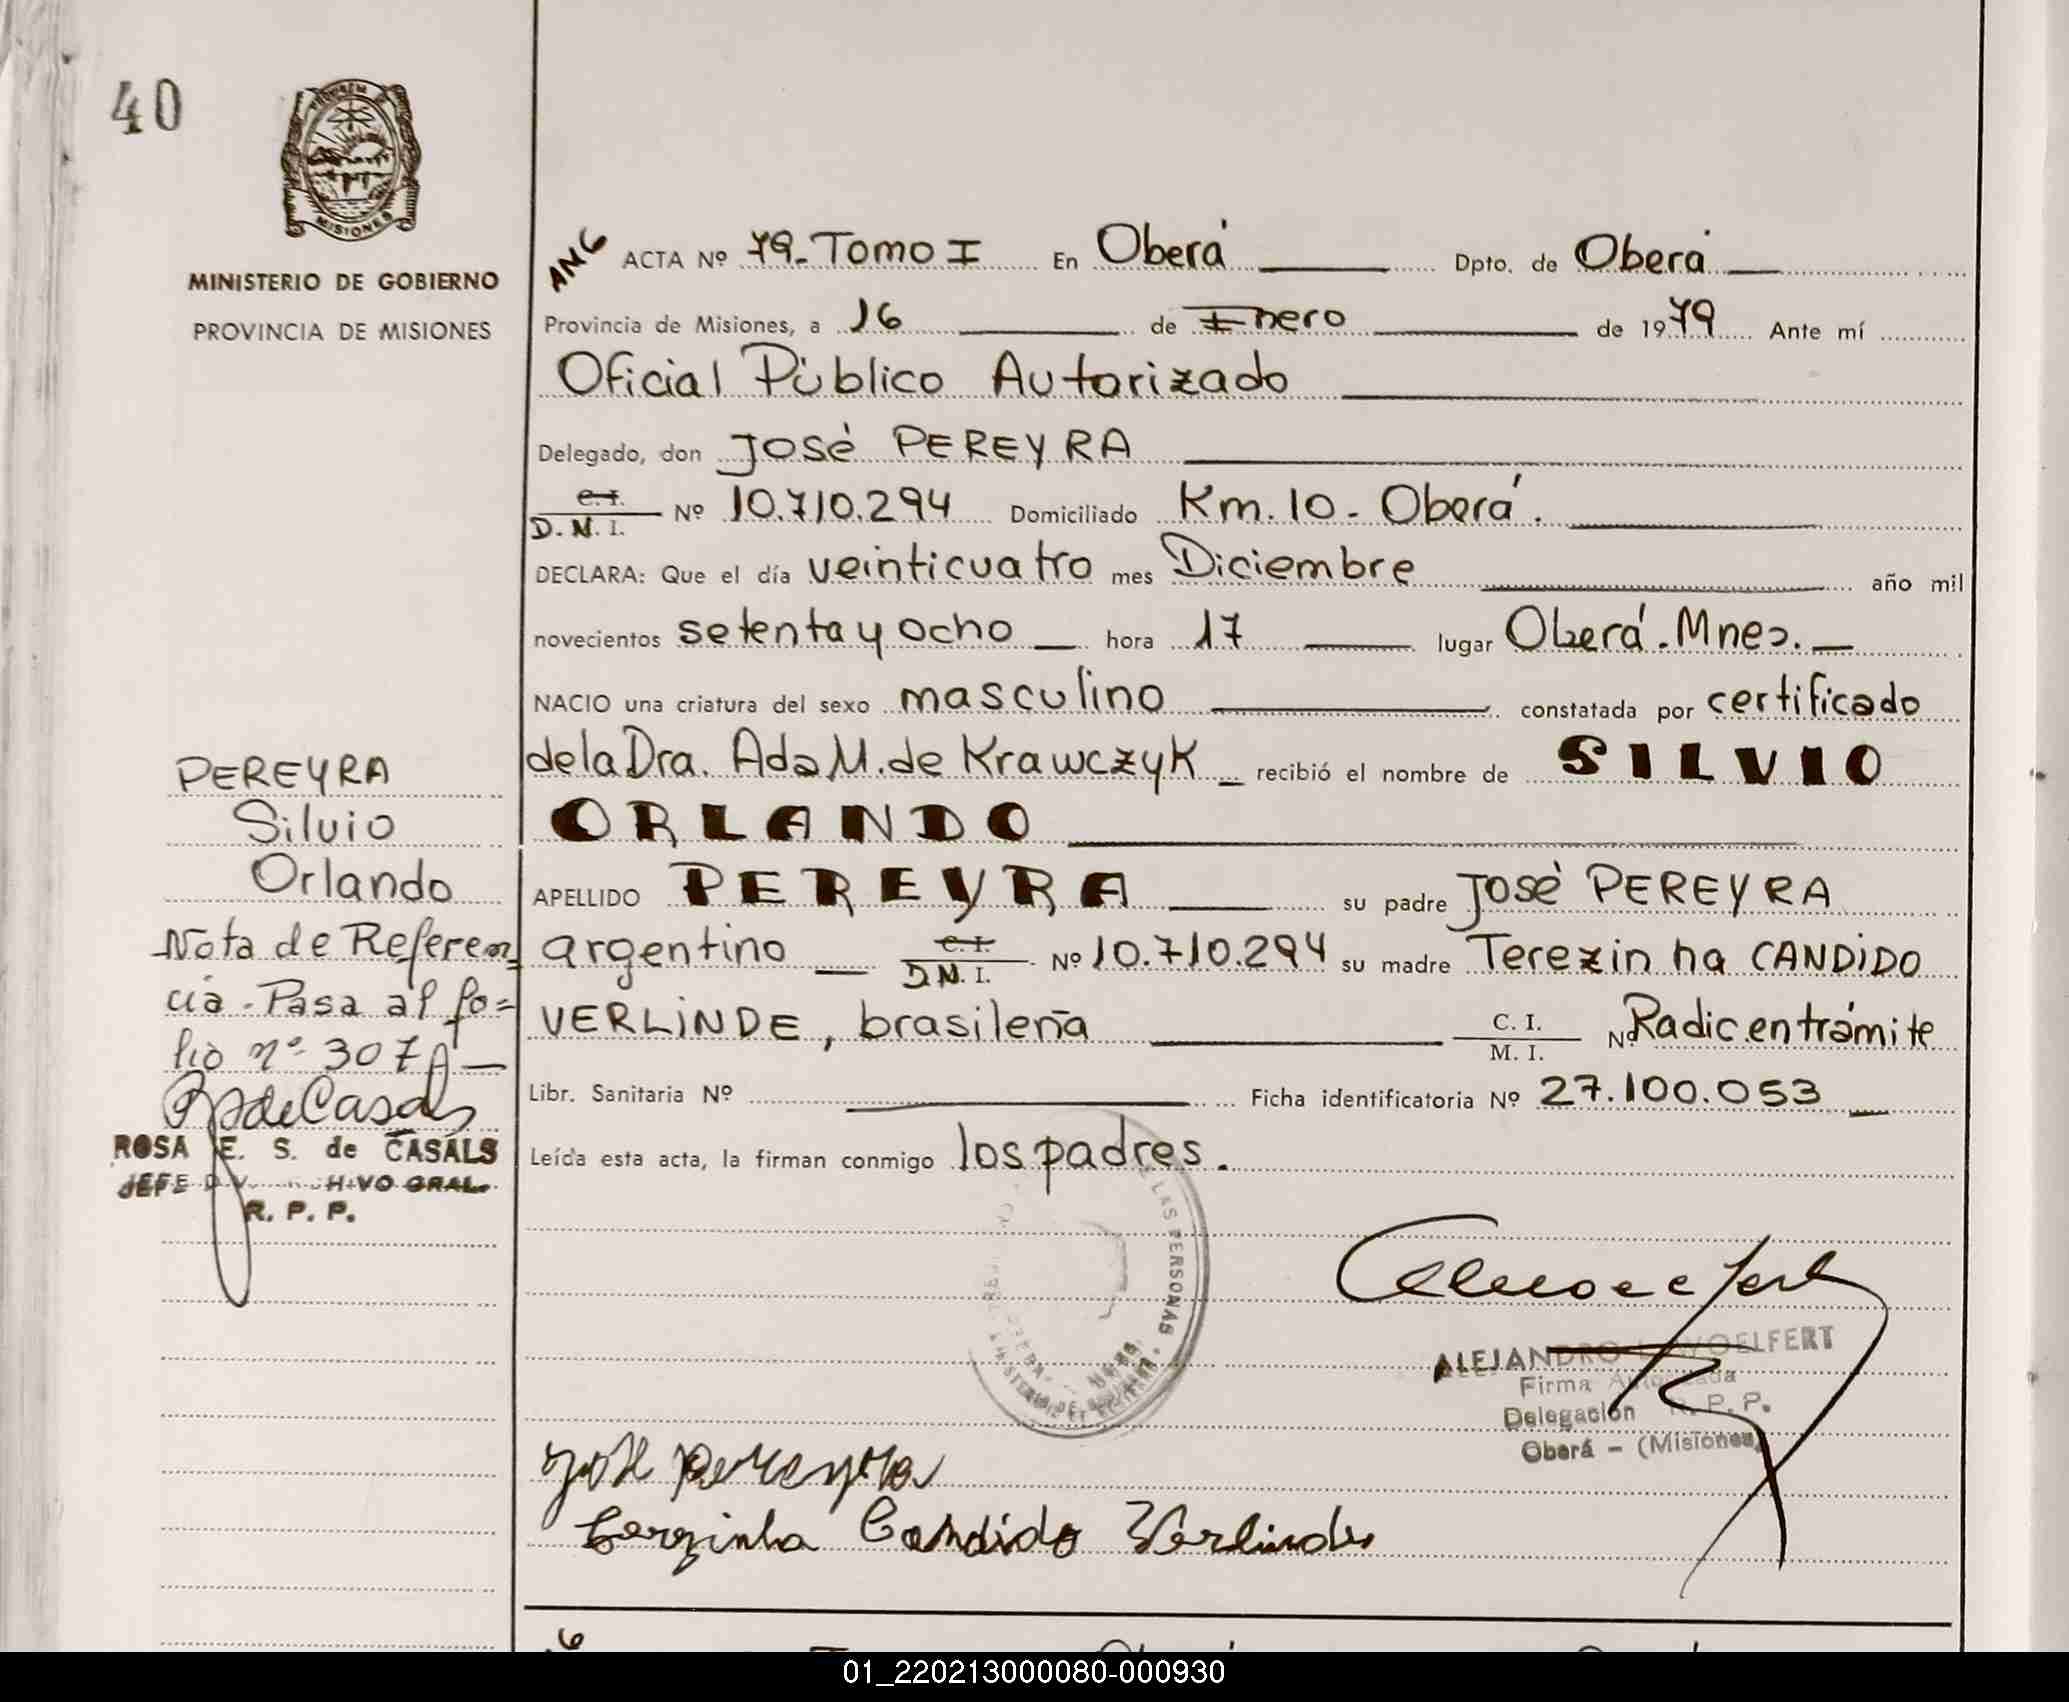 40
MISIONES
MINISTERIO DE GOBIERNO
PROVINCIA DE MISIONES
ANG ACTA Nº 79- Tomo I En Oberá Dpto. de Oberá
Provincia de Misiones, a 16 de Enero de 1979 Ante mí
Oficial Público Autorizado
Delegado, don José PEREYRA
C.I. D.N.I. Nº 10.710.294 Domiciliado Km. 10 - Oberá.
DECLARA: Que el día veinticuatro mes Diciembre año mil
novecientos setenta y ocho hora 17 lugar Oberá. Mnes.
NACIO una criatura del sexo masculino constatada por certificado
de la Dra. Ada M. de Krawczyk recibió el nombre de SILVIO
ORLANDO
APELLIDO PEREYRA su padre José PEREYRA
argentino C.I. D.N.I. Nº 10.710.294 su madre Terezinha CANDIDO
VERLINDE, brasileña C. I. M. I. Nº Radic. en trámite
Libr. Sanitaria Nº Ficha identificatoria Nº 27.100.053
Leída esta acta, la firman conmigo los padres.
PEREYRA
Silvio
Orlando
Nota de Referen
cia - Pasa al fo=
lio nº 307
ROSA E. S. de CASALS
JEFE HIVO GRAL.
R. P. P.
LAS PERSONAS
ALEJANDRO WOELFERT
Firma Autorizada
Delegación R. P. P.
Oberá - (Misiones)
José Pereyra
Terezinha Candido Verlinde
01_220213000080-000930